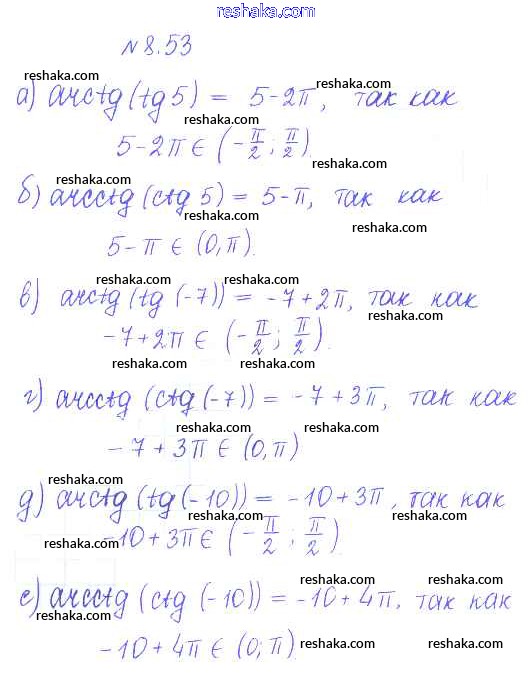 reshaka.com
№ 8.53
reshaka.com reshaka.com
а) arctg (tg 5) = 5 - 2π, так как
reshaka.com reshaka.com
5 - 2π ∈ (-π/2; π/2)
reshaka.com reshaka.com
б) arcctg (ctg 5) = 5 - π, так как
reshaka.com reshaka.com
5 - π ∈ (0, π).
reshaka.com reshaka.com
в) arctg (tg (-7)) = -7 + 2π, так как
reshaka.com
-7 + 2π ∈ (-π/2; π/2).
reshaka.com reshaka.com
г) arcctg (ctg (-7)) = -7 + 3π, так как
reshaka.com reshaka.com
-7 + 3π ∈ (0, π)
reshaka.com
д) arctg (tg (-10)) = -10 + 3π, так как
reshaka.com reshaka.com
-10 + 3π ∈ (-π/2; π/2)
reshaka.com reshaka.com
reshaka.com
е) arcctg (ctg (-10)) = -10 + 4π, так как
reshaka.com reshaka.com
-10 + 4π ∈ (0; π)
reshaka.com reshaka.com